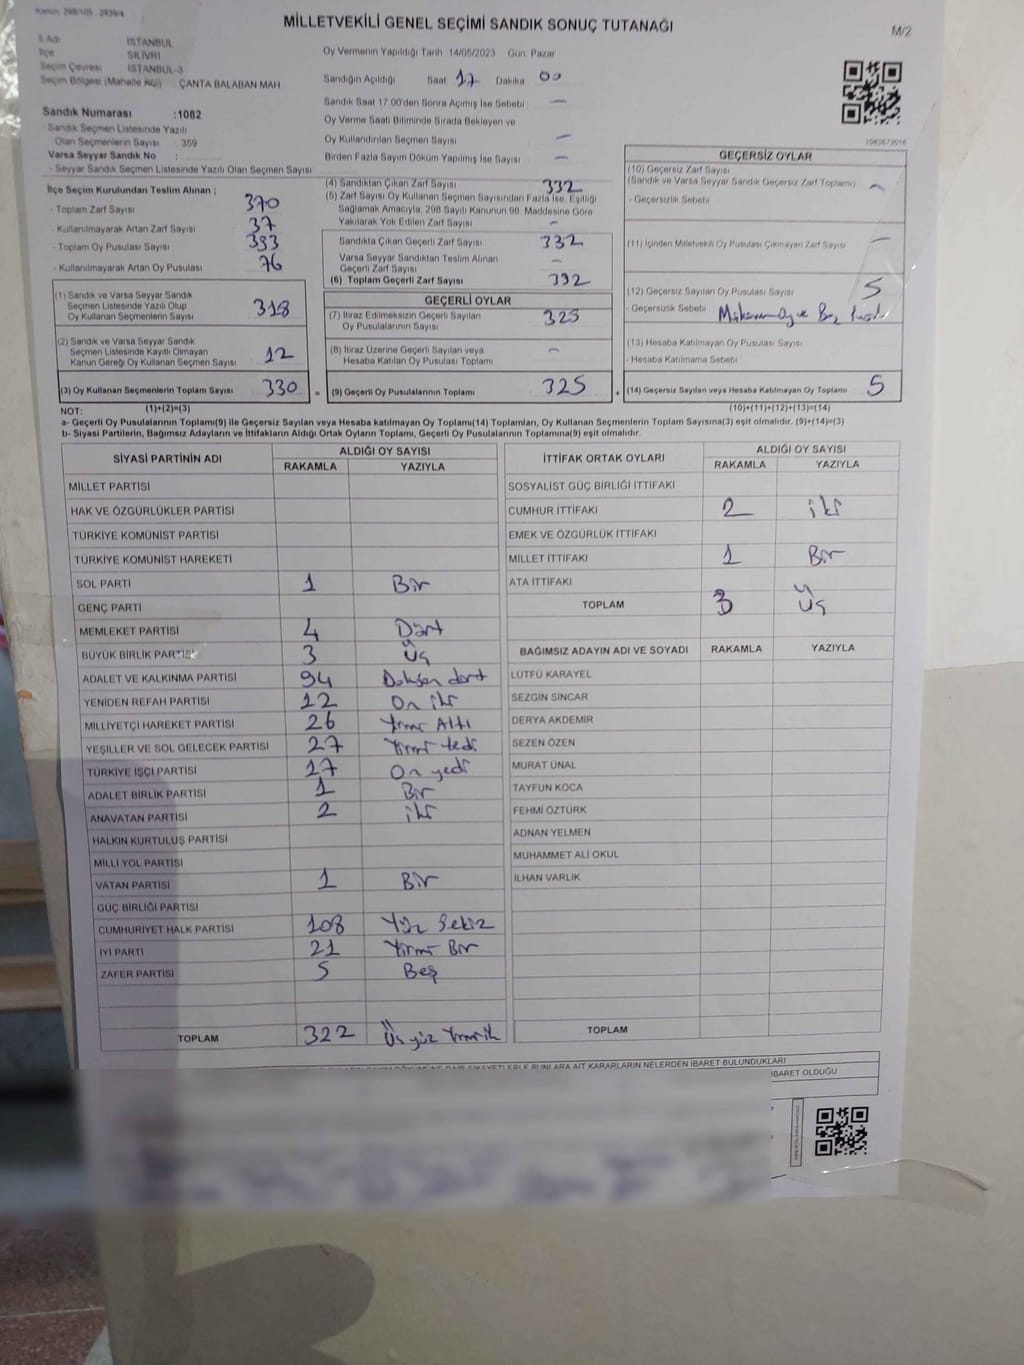 MİLLETVEKİLİ GENEL SEÇİMİ SANDIK SONUÇ TUTANAĞI
M/2
İSTANBUL
İlçe SİLİVRİ
Seçim Çevresi İSTANBUL-3
Seçim Bölgesi (Mahalle Adı) : ÇANTA BALABAN MAH
Oy Vermenin Yapıldığı Tarih 14/05/2023 Gün: Pazar
Sandığın Açıldığı Saat 17 Dakika 00
Sandık Saat 17.00'den Sonra Açımış İse Sebebi —
Oy Verme Saati Bitiminde Sırada Bekleyen ve
Oy Kullandırılan Seçmen Sayısı —
Birden Fazla Sayım Döküm Yapılmış İse Sayısı —
Sandık Numarası :1082
- Sandık Seçmen Listesinde Yazılı
Olan Seçmenlerin Sayısı 359
Varsa Seyyar Sandık No :
- Seyyar Sandık Seçmen Listesinde Yazılı Olan Seçmen Sayısı
İlçe Seçim Kurulundan Teslim Alınan ;
- Toplam Zarf Sayısı 370
- Kullanılmayarak Artan Zarf Sayısı 37
- Toplam Oy Pusulası Sayısı 393
- Kullanılmayarak Artan Oy Pusulası 76
(1) Sandık ve Varsa Seyyar Sandık
Seçmen Listesinde Yazılı Olup
Oy Kullanan Seçmenlerin Sayısı 318
(2) Sandık ve Varsa Seyyar Sandık
Seçmen Listesinde Kayıtlı Olmayan
Kanun Gereği Oy Kullanan Seçmen Sayısı 12
(3) Oy Kullanan Seçmenlerin Toplam Sayısı 330
(4) Sandıktan Çıkan Zarf Sayısı 332
(5) Zarf Sayısı Oy Kullanan Seçmen Sayısından Fazla İse, Eşitliği
Sağlamak Amacıyla, 298 Sayılı Kanunun 98. Maddesine Göre
Yakılarak Yok Edilen Zarf Sayısı —
Sandıkta Çıkan Geçerli Zarf Sayısı 332
Varsa Seyyar Sandıktan Teslim Alınan
Geçerli Zarf Sayısı —
(6) Toplam Geçerli Zarf Sayısı 332
GEÇERLİ OYLAR
(7) İtiraz Edilmeksizin Geçerli Sayılan
Oy Pusulalarının Sayısı 325
(8) İtiraz Üzerine Geçerli Sayılan veya
Hesaba Katılan Oy Pusulası Toplamı —
= (9) Geçerli Oy Pusulalarının Toplamı 325
GEÇERSİZ OYLAR
(10) Geçersiz Zarf Sayısı
(Sandık ve Varsa Seyyar Sandık Geçersiz Zarf Toplamı) —
- Geçersizlik Sebebi
(11) İçinden Milletvekili Oy Pusulası Çıkmayan Zarf Sayısı —
(12) Geçersiz Sayılan Oy Pusulası Sayısı 5
- Geçersizlik Sebebi
(13) Hesaba Katılmayan Oy Pusulası Sayısı
- Hesaba Katılmama Sebebi
+ (14) Geçersiz Sayılan veya Hesaba Katılmayan Oy Toplamı 5
NOT: (1)+(2)=(3) (10)+(11)+(12)+(13)=(14)
a- Geçerli Oy Pusulalarının Toplamı(9) ile Geçersiz Sayılan veya Hesaba katılmayan Oy Toplamı(14) Toplamları, Oy Kullanan Seçmenlerin Toplam Sayısına(3) eşit olmalıdır. (9)+(14)=(3)
b- Siyasi Partilerin, Bağımsız Adayların ve İttifakların Aldığı Ortak Oyların Toplamı, Geçerli Oy Pusulalarının Toplamına(9) eşit olmalıdır.
SİYASİ PARTİNİN ADI ALDIĞI OY SAYISI
RAKAMLA YAZIYLA
MİLLET PARTİSİ
HAK VE ÖZGÜRLÜKLER PARTİSİ
TÜRKİYE KOMÜNİST PARTİSİ
TÜRKİYE KOMÜNİST HAREKETİ
SOL PARTİ 1 Bir
GENÇ PARTİ
MEMLEKET PARTİSİ 4 Dört
BÜYÜK BİRLİK PARTİSİ 3 Üç
ADALET VE KALKINMA PARTİSİ 94 Doksan dört
YENİDEN REFAH PARTİSİ 12 On iki
MİLLİYETÇİ HAREKET PARTİSİ 26 Yirmi Altı
YEŞİLLER VE SOL GELECEK PARTİSİ 27 Yirmi Yedi
TÜRKİYE İŞÇİ PARTİSİ 17 On yedi
ADALET BİRLİK PARTİSİ 1 Bir
ANAVATAN PARTİSİ 2 iki
HALKIN KURTULUŞ PARTİSİ
MİLLİ YOL PARTİSİ
VATAN PARTİSİ 1 Bir
GÜÇ BİRLİĞİ PARTİSİ
CUMHURİYET HALK PARTİSİ 108 Yüz Sekiz
İYİ PARTİ 21 Yirmi Bir
ZAFER PARTİSİ 5 Beş
TOPLAM 322 Üç yüz Yirmi iki
İTTİFAK ORTAK OYLARI ALDIĞI OY SAYISI
RAKAMLA YAZIYLA
SOSYALİST GÜÇ BİRLİĞİ İTTİFAKI
CUMHUR İTTİFAKI 2 iki
EMEK VE ÖZGÜRLÜK İTTİFAKI
MİLLET İTTİFAKI 1 Bir
ATA İTTİFAKI
TOPLAM 3 Üç
BAĞIMSIZ ADAYIN ADI VE SOYADI RAKAMLA YAZIYLA
LÜTFÜ KARAYEL
SEZGİN SİNCAR
DERYA AKDEMİR
SEZEN ÖZEN
MURAT ÜNAL
TAYFUN KOCA
FEHMİ ÖZTÜRK
ADNAN YELMEN
MUHAMMET ALİ OKUL
İLHAN VARLIK
TOPLAM
KARARLARIN NELERDEN İBARET BULUNDUKLARI
İBARET OLDUĞU